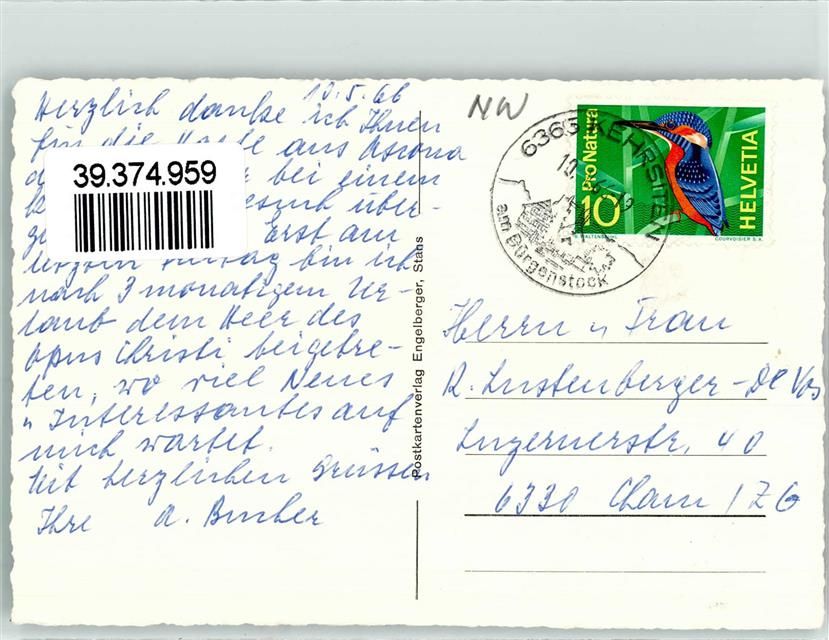 10.5.66
Herzlich danke ich Ihnen
für die Karte aus Ascona
bei einem
über-
Erst am
bin ich
nach 3 monatigem Ur-
laub dem Heer des
Opus Christi beigetre-
ten, wo viel Neues
u Interessantes auf
mich wartet.
Mit herzlichen Grüssen
Ihre A. Bucher
39.374.959
Postkartenverlag Engelberger, Stans
NW
6363 KEHRSITEN
am Bürgenstock
Pro Natura
10
HELVETIA
COURVOISIER S.A.
Herrn u Frau
R. Lustenberger-De Vos
Luzernerstr. 40
6330 Cham / ZG